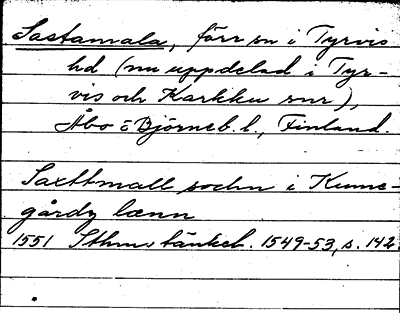 Sastamala, förr sn i Tyrvis
hd (nu uppdelad i Tyr-
vis och Karkku snr),
Åbo & Björneb. l., Finland.
Saxttmall sochn i Kunne-
gårdz lænn
1551 Sthms tänkeb. 1549-53, s. 142.